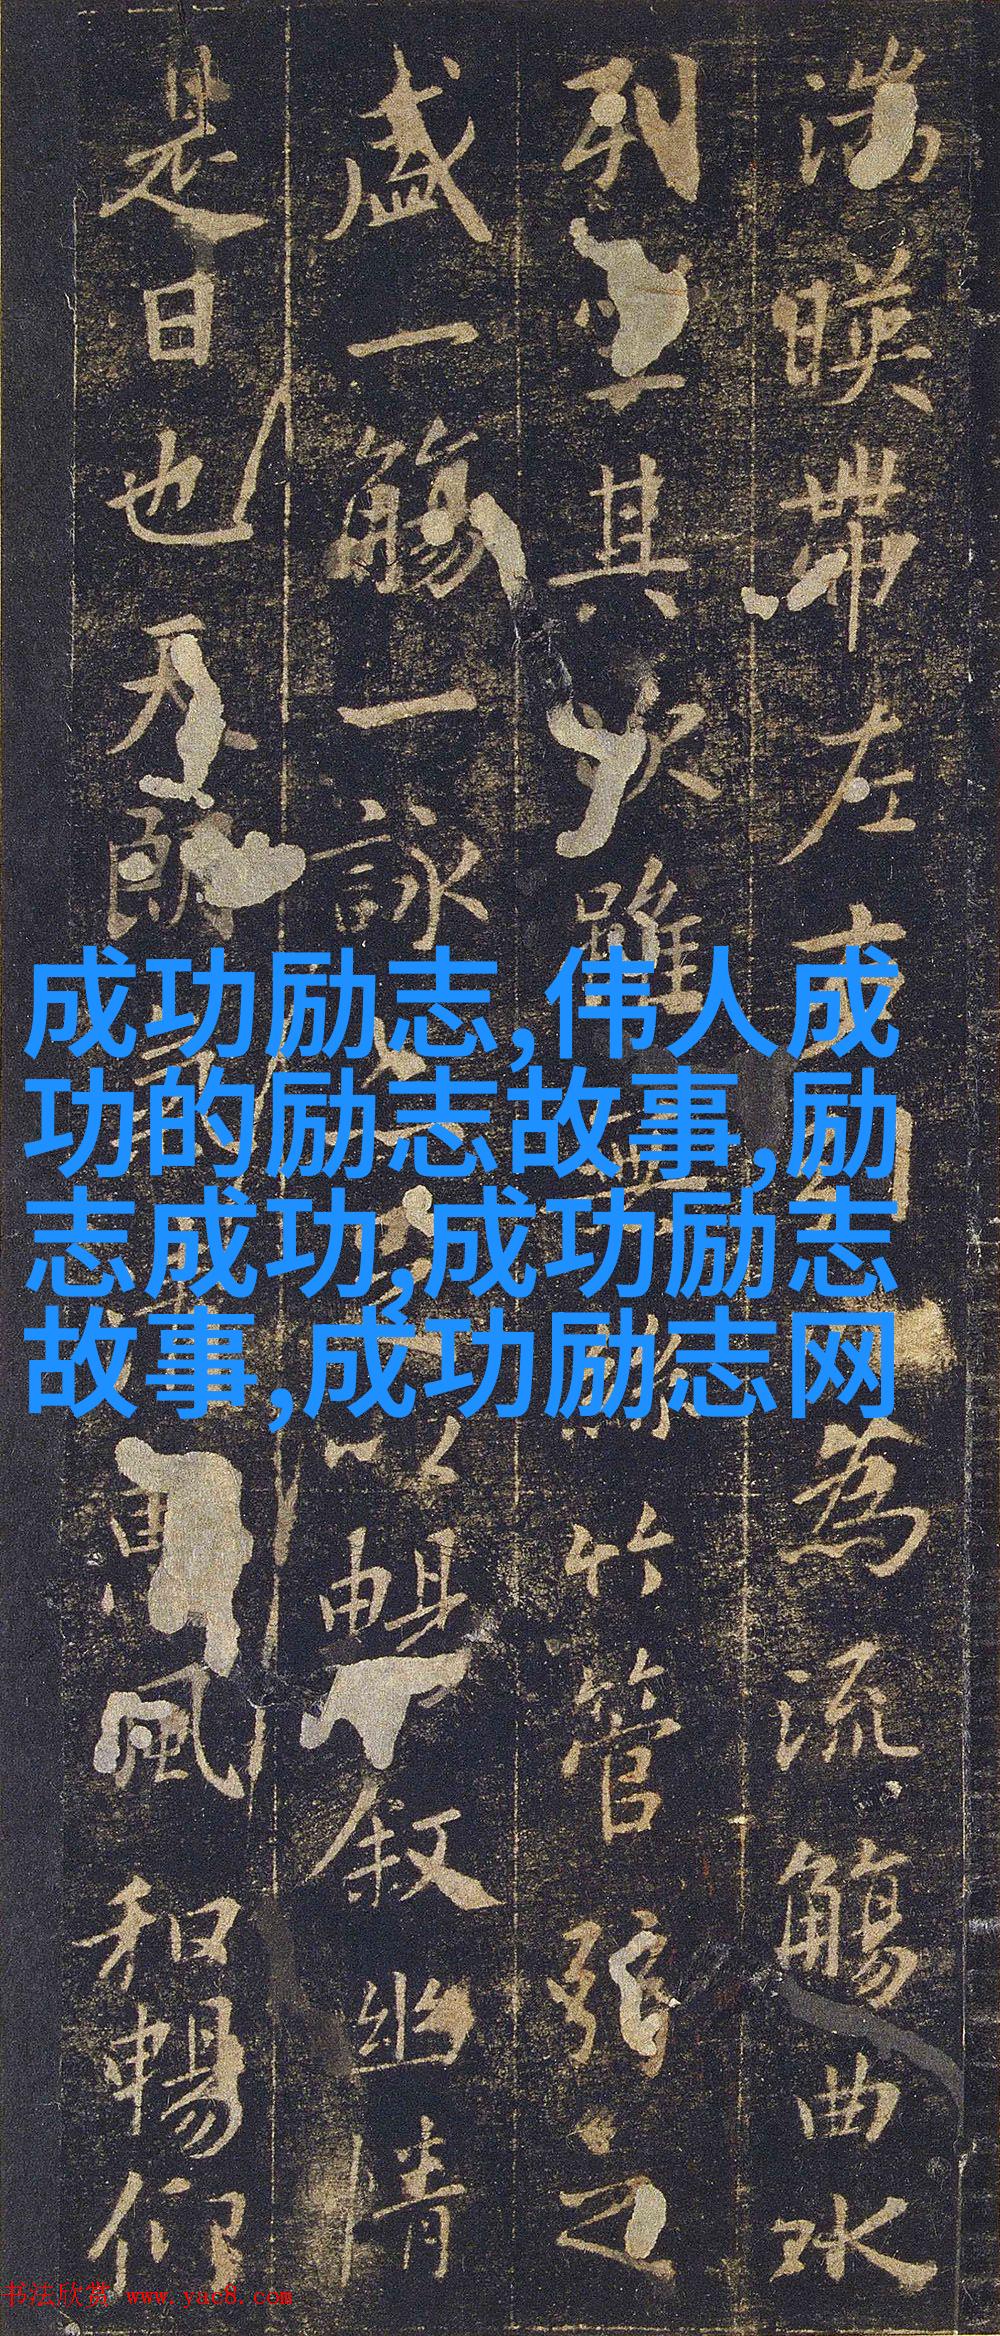 湍暎帶左右
為流觴曲水
列坐其次雖無絲竹管弦之
盛一觴一詠
以暢叙幽情
是日也天朗
風和暢仰
成功励志,伟人成
功的励志故事,励
志成功,成功励志
故事,成功励志网
书法欣赏 www.yac8.com